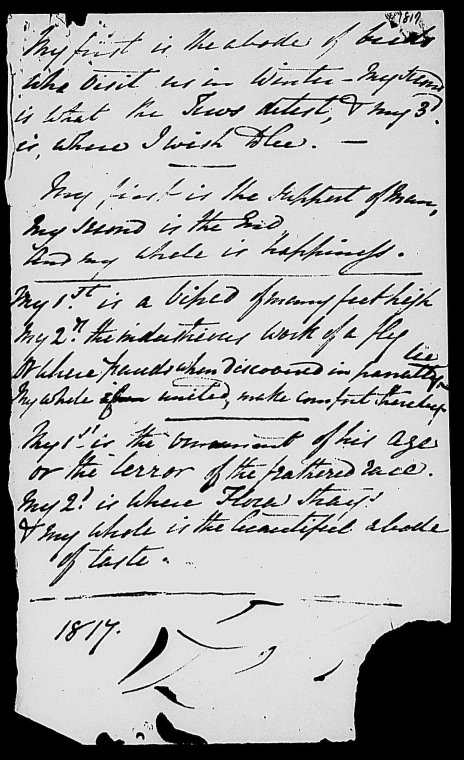 1817
My first is the abode of birds
who visit us in Winter - My second
is what the Jews detest, & my 3d.
is, where I wish to be. -
My first is the support of Man,
My second is the End
And my whole is happiness.
My 1st is a biped of many feet high
My 2n. the industrious work of a fly
Or where frauds when discovered in lie
My whole united, make comfort thereby
My 1st is the ornament of his age
or the terror of the feathered race.
My 2d is where Flora strays
& my whole is the beautiful abode
of taste.
1817.